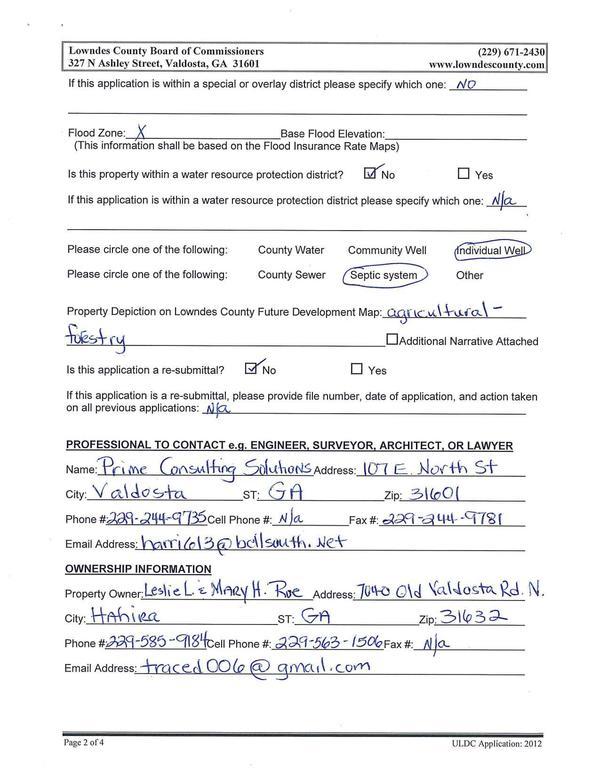 Lowndes County Board of Commissioners (229) 671-2430
327 N Ashley Street, Valdosta, GA 31601 www.lowndescounty.com
If this application is within a special or overlay district please specify which one: NO
Flood Zone: X Base Flood Elevation:
(This information shall be based on the Flood Insurance Rate Maps)
Is this property within a water resource protection district? ☑ No ☐ Yes
If this application is within a water resource protection district please specify which one: N/a
Please circle one of the following: County Water Community Well Individual Well
Please circle one of the following: County Sewer Septic system Other
Property Depiction on Lowndes County Future Development Map: agricultural -
forestry ☐Additional Narrative Attached
Is this application a re-submittal? ☑ No ☐ Yes
If this application is a re-submittal, please provide file number, date of application, and action taken
on all previous applications: N/a
PROFESSIONAL TO CONTACT e.g. ENGINEER, SURVEYOR, ARCHITECT, OR LAWYER
Name: Prime Consulting Solutions Address: 107 E. North St
City: Valdosta ST: GA Zip: 31601
Phone #: 229-244-9735 Cell Phone #: N/a Fax #: 229-244-9781
Email Address: harri613@bellsouth.net
OWNERSHIP INFORMATION
Property Owner: Leslie L. & Mary H. Roe Address: 7040 Old Valdosta Rd. N.
City: Hahira ST: GA Zip: 31632
Phone #: 229-585-9184 Cell Phone #: 229-563-1506 Fax #: N/a
Email Address: traced006@gmail.com
Page 2 of 4 ULDC Application: 2012